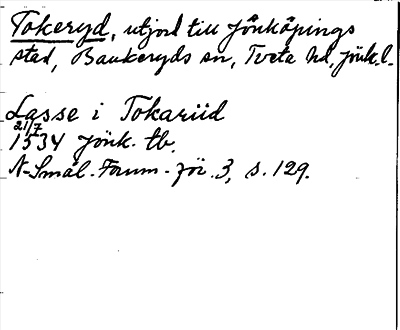 Tokeryd, utjord till Jönköpings
stad, Bankeryds sn, Tveta hd, Jönk. l.
Lasse i Tokariid
21/7
1534 Jönk. tb.
N-Smål. Forum. för. 3, s. 129.